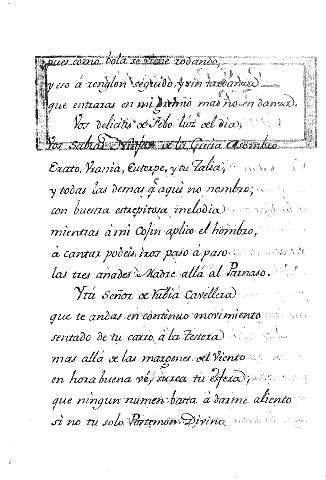 pues como bola se viene rodando,
y eso á renglon seguido, y sin tardanza
que entraras en mi animo mas no en danza.
Vos delicias de Febo luz del dia,
Vos sabias de la Grecia asombro
Erato, Vrania, Euterpe, y tu Talia,
y todas las demas q.e aqui no nombro,
con buestra estrepitosa melodia
mientras á mi Cofin aplico el hombro,
á cantar podeis iros paso á paso
las tres añades Madre allá al Parnaso.
Y tu Señor de Rubia Cavellera
que te andas en continuo movimiento
sentado de tu carro, á la testera
mas allá de las margenes del Viento
en hora buena vé, surca tu esfera,
que ningun numen basta á darme aliento
si no tu solo Divino